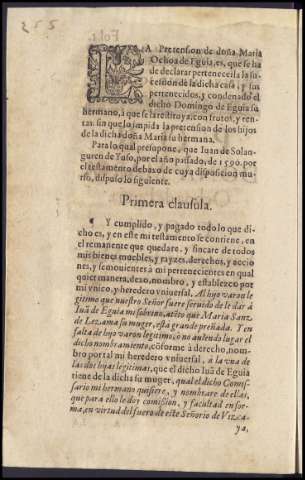 255
LA Pretension de doña Maria
Ochoa de Eguia, es, que se ha
de declarar pertenecerla la su
cession de la dicha casa, y sus
pertenecidos, y condenado el
dicho Domingo de Eguia su
hermano, à que se la restituya, con frutos, y ren-
tas. sin que lo impida la pretension de los hijos
de la dicha doña Maria su hermana.
Para lo qual presupone, que Iuan de Solan-
guren de Yuso, por el año passado, de 1590. por
el testamento debaxo de cuya disposicion mu-
rio, dispuso lo siguiente.
Primera clausula.
Y cumplido, y pagado todo lo que di-
cho es, y en este mi testamento se contiene, en
el remanente que quedare, y fincare de todos
mis bienes muebles, y rayzes, derechos, y accio
nes, y semouientes à mi pertenecientes en qual
quier manera, dexo, nombro, y establezco por
mi vnico, y heredero vniuersal. Al hijo varon le
gitimo que nuestro Señor fuere seruido de dar à
Iuã de Eguia mi sobrino, atẽto que Maria Sanz
de Lezama su muger, està grande preñada. Y en
falta de hijo varon legitimo, ò no auiendo lugar el
dicho nombramiento, cõforme à derecho, nom-
bro por tal mi heredero vniuersal, à la vna de
las dos hijas legitimas, que el dicho Iuã de Eguia
tiene de la dicha su muger, qual el dicho Comis-
sario mi hermano quisiere, y nombrare de ellas,
que para ello le doy comission, y facultad en for-
ma, en virtud del fuero de este Señorio de Vizca-
ya,